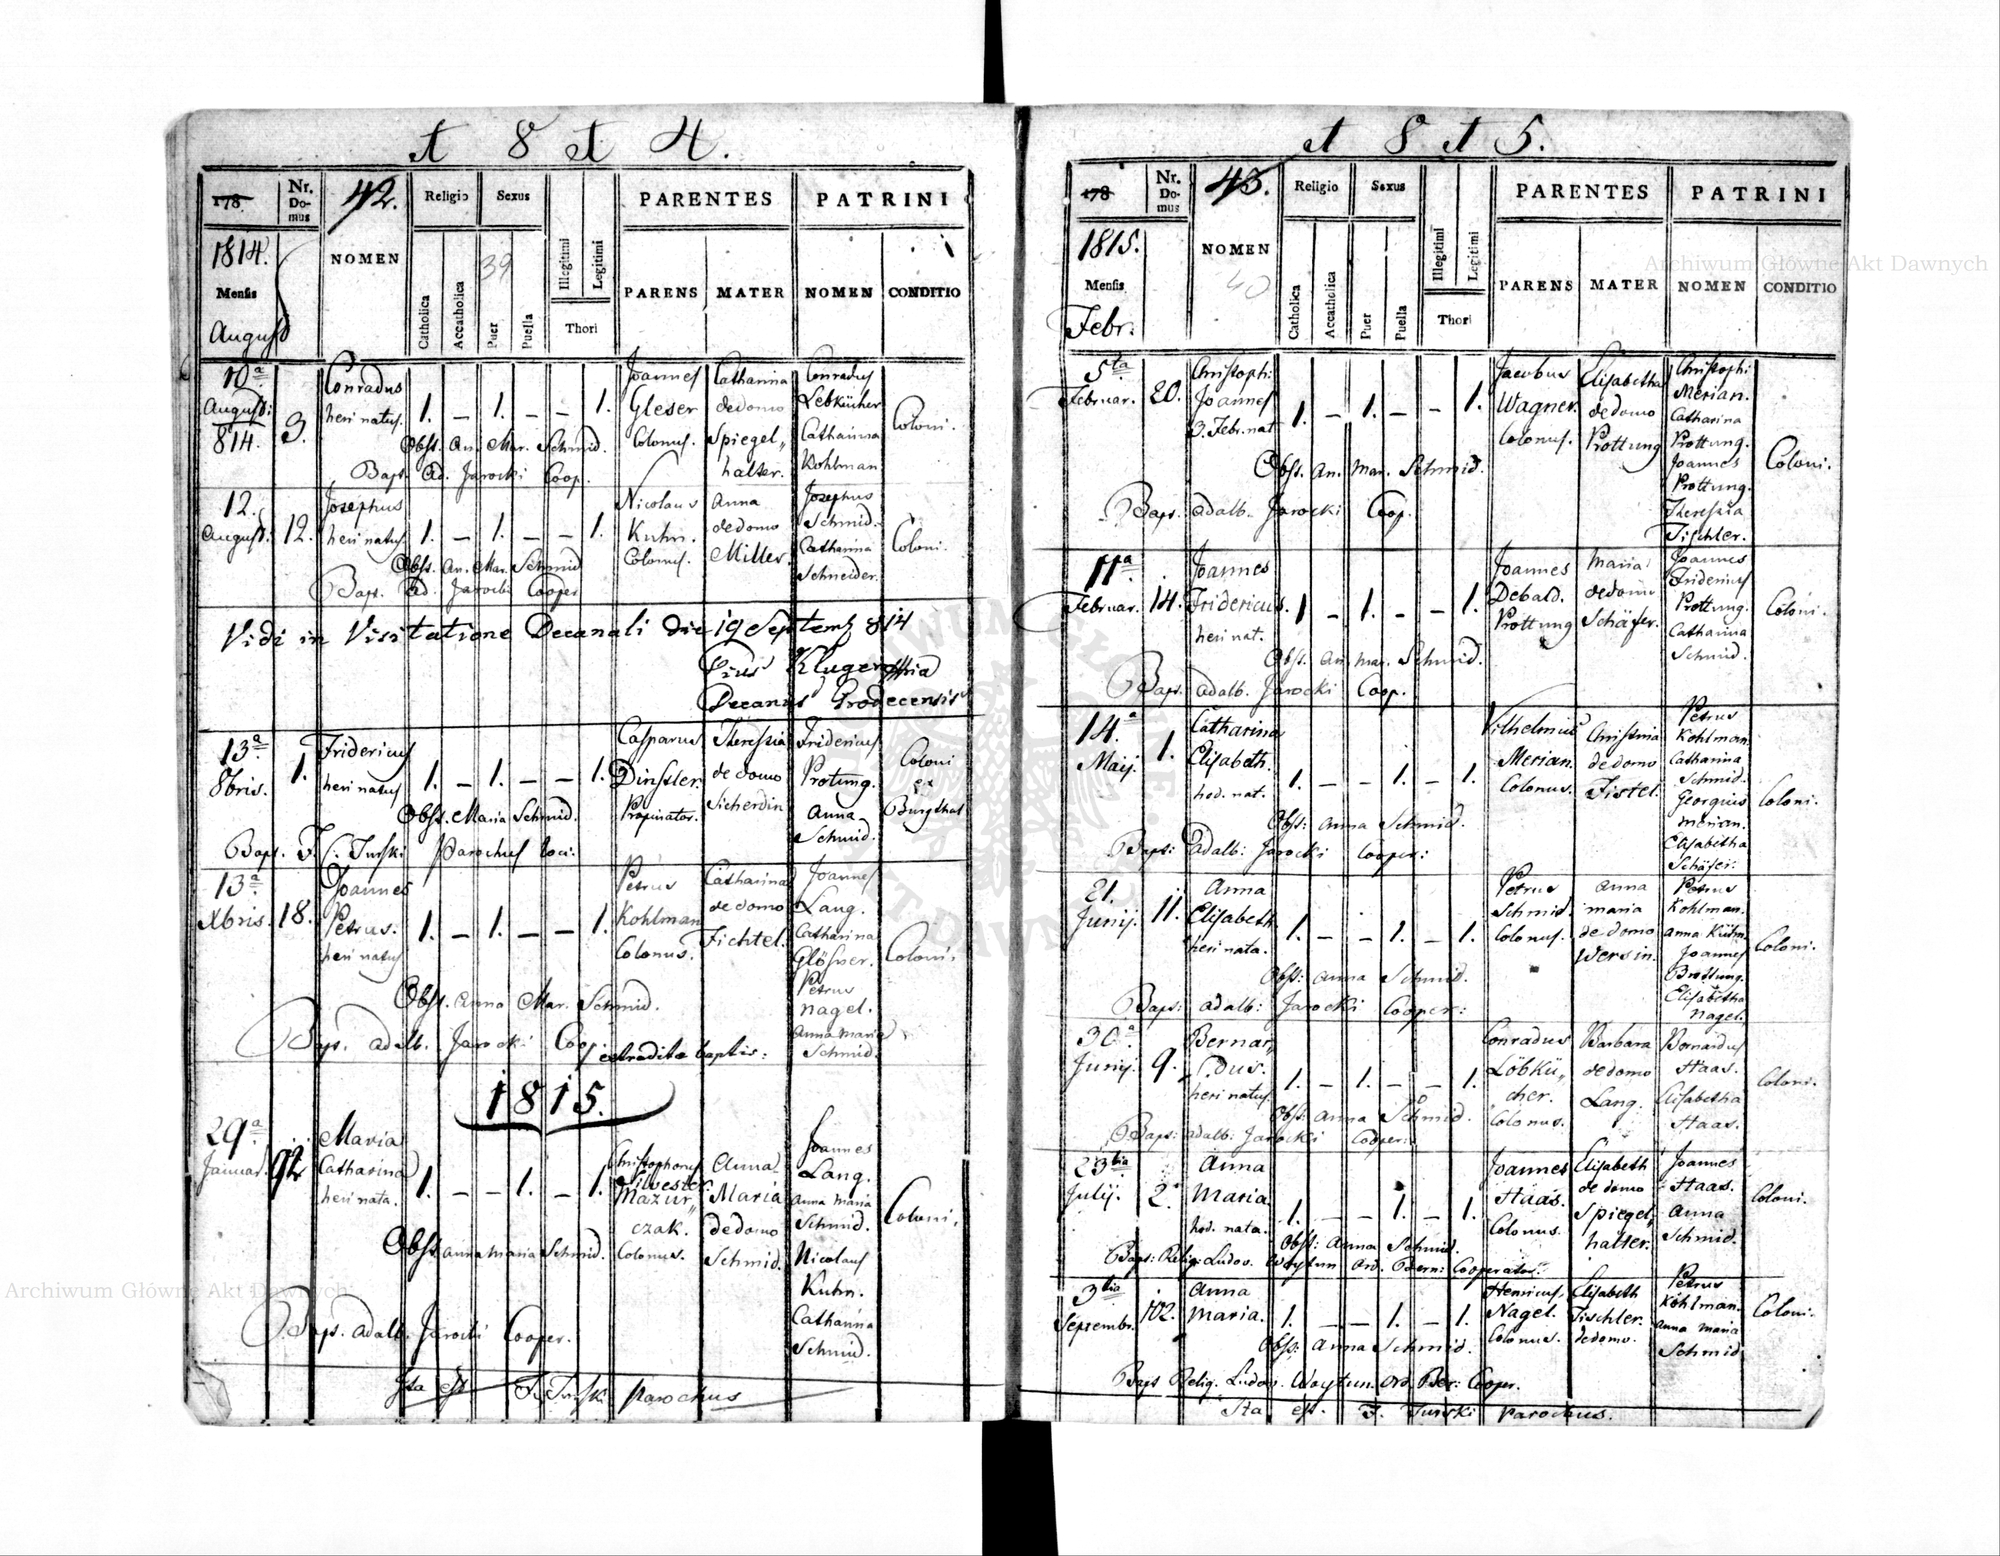 1 8 1 4.
178
Nr. Domus
42.
Religio
Sexus
PARENTES
PATRINI
1814.
Mensis
August
NOMEN
39
Catholica
Accatholica
Puer
Puella
Illegitimi
Legitimi
Thori
PARENS
MATER
NOMEN
CONDITIO
10a August: 814.
3.
Conradus heri natus.
1. – 1. – – 1.
Joannes Gleser Colonus.
Catharina de domo Spiegel„ halter.
Conradus Lebkücher Catharina Kohlman
Coloni.
Obst. An. Mar. Schmid.
Bapt. Ad. Jarocki Coop.
12. August:
12.
Josephus heri natus
1. – 1. – – 1.
Nicolaus Kuhn. Colonus.
Anna de domo Miller.
Josephus Schmid. Catharina Schneider.
Coloni.
Obst. An. Mar. Schmid
Bapt. Ad. Jarocki Cooper
Vidi in Visitatione Decanali die 19 Septemb 814
Pius Kluger
Decanus Grodecensis
13a 8bris.
1.
Fridericus heri natus
1. – 1. – – 1.
Casparus Dinsler Propinator.
Theressia de domo Sicherdin
Fridericus Protung. Anna Schmid.
Coloni ex Burgthal
Obst. Maria Schmid.
Bapt. F. Turski Parochus loci.
13a Xbris.
18.
Joannes Petrus. heri natus
1. – 1. – – 1.
Petrus Kohlman Colonus.
Catharina de domo Fichtel.
Joannes Lang. Catharina Glösner. Petrus Nagel. Anna Maria Schmid.
Coloni.
Obst. Anna Mar. Schmid.
Bapt. Adalb. Jarocki Coop. extradita baptis:
1815.
29a Januar.
92
Maria Catharina heri nata.
1. – – 1. – 1.
Christophorus Silvester Mazur„ czak. Colonus.
Anna Maria de domo Schmid.
Joannes Lang. Anna Maria Schmid. Nicolaus Kuhn. Catharina Schmid.
Coloni.
Obst. Anna Maria Schmid.
Bapt. Adalb. Jarocki Cooper.
Ita est F. Turski Parochus
1 8 1 5.
178
Nr. Domus
43.
Religio
Sexus
PARENTES
PATRINI
1815.
Mensis
Febr.
NOMEN
40
Catholica
Accatholica
Puer
Puella
Illegitimi
Legitimi
Thori
PARENS
MATER
NOMEN
CONDITIO
5ta Februar.
20.
Christoph: Joannes 3. Febr. nat
1. – 1. – – 1.
Jacobus Wagner. Colonus.
Elisabetha de domo Prottung
Christoph: Merian. Catharina Prottung. Joannes Prottung. Theressia Tischler.
Coloni.
Obst. An. Mar. Schmid.
Bapt. Adalb. Jarocki Coop.
11a Februar.
14.
Joannes Fridericus. heri nat.
1 – 1. – – 1.
Joannes Debald. Prottung
Maria de domo Schäfer.
Joannes Fridericus Prottung. Catharina Schmid.
Coloni.
Obst. An. Mar. Schmid.
Bapt. Adalb. Jarocki Coop.
14.a Maij.
1.
Catharina Elisabeth. hod. nat.
1. – – 1. – 1.
Vilhelmus Merian. Colonus.
Christina de domo Fistel.
Petrus Kohlman. Catharina Schmid. Georgius Merian. Elisabetha Schäfer.
Coloni.
Obst: Anna Schmid.
Bapt: Adalb: Jarocki Cooper:
21. Junij.
11.
Anna Elisabeth heri nata.
1. – – 1. – 1.
Petrus Schmid. Colonus.
Anna Maria de domo Wersin.
Petrus Kohlman. Anna Kühn. Joannes Brottung. Elisabetha Nagel.
Coloni.
Obst: Anna Schmid.
Bapt: Adalb: Jarocki Cooper:
30.a Junij.
9.
Bernar„ dus. heri natus
1. – 1. – – 1.
Conradus Löbkü„ cher. Colonus.
Barbara de domo Lang.
Bernardus Haas. Elisabetha Haas.
Coloni.
Obst: Anna Schmid.
Bapt: Adalb: Jarocki Cooper:
23tia Julij.
2.
Anna Maria hod. nata.
1. – – 1. – 1.
Joannes Haas. Colonus.
Elisabeth de domo Spiegel„ halter.
Joannes Haas. Anna Schmid.
Coloni.
Obst: Anna Schmid.
Bapt: Relig: Ludov. Woytun Ord. Bern: Cooperator.
3tia Septembr.
102.
Anna Maria.
1. – – 1. – 1.
Henricus Nagel. Colonus.
Elisabeth Tischler. de domo.
Petrus Kohlman. Anna Maria Schmid
Coloni.
Obst: Anna Schmid.
Bapt Relig. Ludov. Woytun. Ord. Ber: Cooper.
Ita est. F. Turski Parochus.
Archiwum Główne Akt Dawnych
Archiwum Główne Akt Dawnych